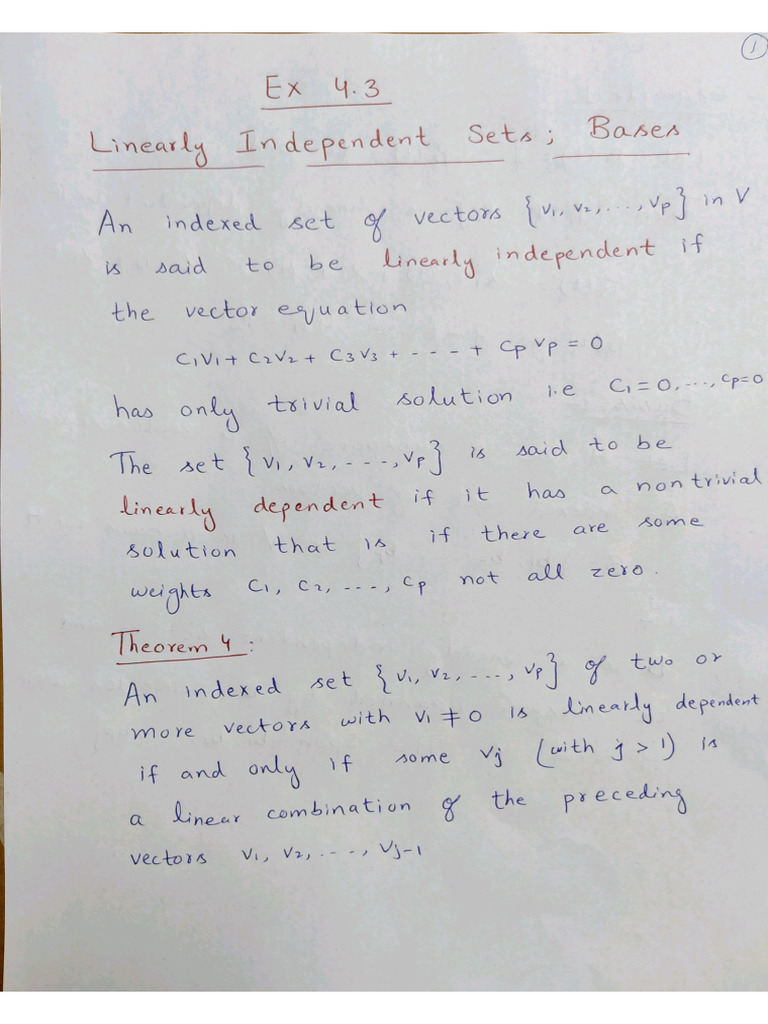 1
Ex 4.3
Linearly Independent Sets; Bases
An indexed set of vectors {v1, v2, ..., vp} in V
is said to be linearly independent if
the vector equation
c1v1 + c2v2 + c3v3 + - - - + cpvp = 0
has only trivial solution i.e c1=0, ..., cp=0
The set {v1, v2, - - -, vp} is said to be
linearly dependent if it has a nontrivial
solution that is if there are some
weights c1, c2, - - -, cp not all zero.
Theorem 4:
An indexed set {v1, v2, ..., vp} of two or
more vectors with v1 ≠ 0 is linearly dependent
if and only if some vj (with j > 1) is
a linear combination of the preceding
vectors v1, v2, - - -, vj-1